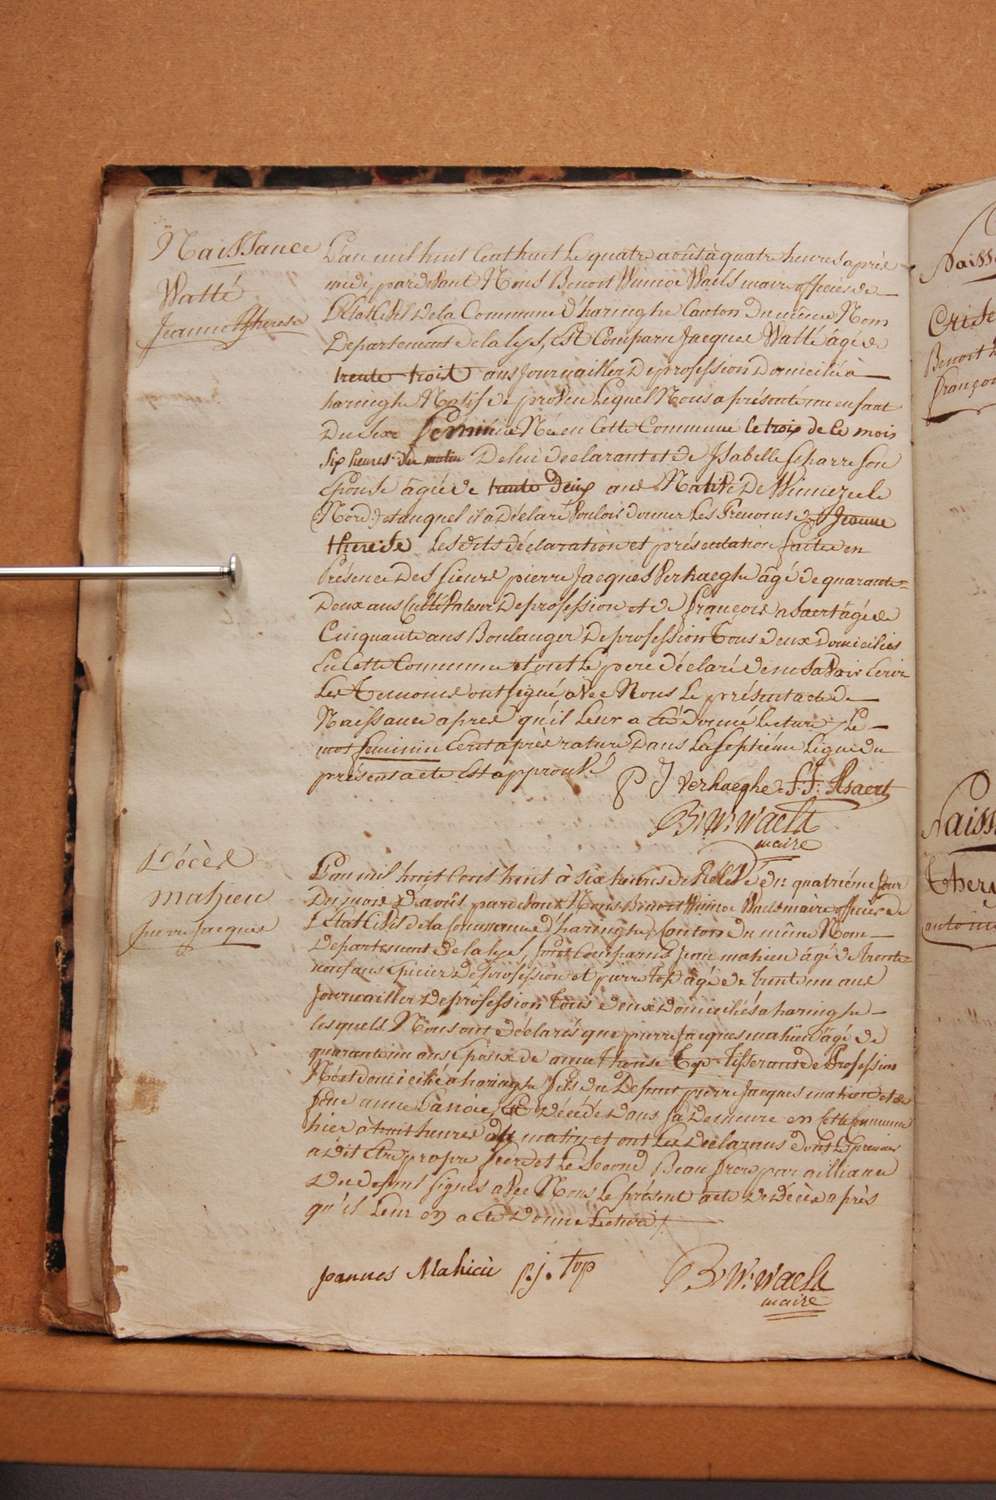 Naissance
Watté
Jeanne Therese
L'an mil huit Cent huit le quatre août à quatre heures après
midi, pardevant Nous Benoit Winnoc Waels maire officier de
L'État Civil de la Commune d'haringhe Canton du même Nom
Departement de la lys, Est Comparu Jacques Watté âgé de
trente trois ans Journaillier De profession Domicilié à
haringhe Natif de lequel Nous a présenté un enfant
Du Sexe feminin Né en Cette Commune le trois de le mois
Six heures du matin De lui declarant et de Isabelle Scharre Son
Epouse âgée de trente Deux ans Native De Winnezeele
(Nord) et auquel il a Déclaré Vouloir donner les Prenoms de Jeanne
therese les dits déclaration et présentation faite en
Présence Des sieurs pierre Jacques Verhaeghe âgé de quarante=
Deux ans Cultivateur De profession et de François Asaert âgé de
Cinquante ans Boulanger De profession Tous deux Domiciliés
En Cette Commune et ont le pere déclaré de ne Savoir Ecrire
Les Temoins ont signé avec Nous le présent acte de
Naissance après qu'il leur a été donné lecture. Le
mot feminin Ecrit après rature Dans la Septième ligne du
présent acte Est approuvé
P J Verhaeghe F: F: Asaert
B: W: Waels
maire
Décès
mahieu
pierre Jacques
L'an mil huit Cent huit à six heures de Relevé du quatrième Jour
Du mois d'août pardevant Nous Benoit Winnoc Waels maire officier de
L'État Civil de la Commune d'haringhe Canton du même Nom
Departement de la lys, sont Comparus Jean mahieu âgé de trente
neuf ans Epicier De profession et pierre Top âgé de trente un ans
Journaillier De profession tous deux Domiciliés a haringhe
lesquels Nous ont déclarés que pierre Jacques mahieu âgé de
quarante un ans Epoux de anne therese Top tisserant de Profession
Né et domicilié a haringhe fils du Defunt pierre Jacques mahieu et de
anne Est décédé Dans sa Demeure en cette Commune
hier à huit heures du matin et ont les Déclarans dont le premier
a dit Etre propre frere et le Second Beau frere par alliance
Du defunt signés avec Nous le présent acte de décès après
qu'il leur en a été Donné lecture
joannes Mahieu p. j. Top
B: W: Waels
maire
Naiss
Benoit
françois
Naiss
There
antoine